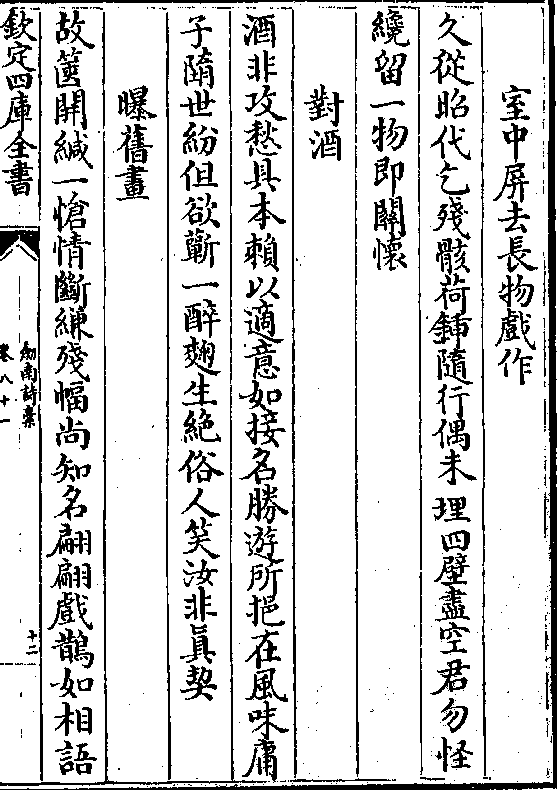 室中屏去長物戲作
久從昭代乞殘骸荷鍤隨行偶未埋四壁盡空君勿怪
纔留一物即關懷
對酒
酒非攻愁具本賴以適意如接名勝遊所挹在風味庸
子隨世紛但欲蘄一醉麴生絶俗人笑汝非真契
曝舊畫
故篋開緘一愴情斷縑殘幅尚知名翩翩戲鵲如相語
欽定四庫全書
劍南詩稾
卷八十一
十二